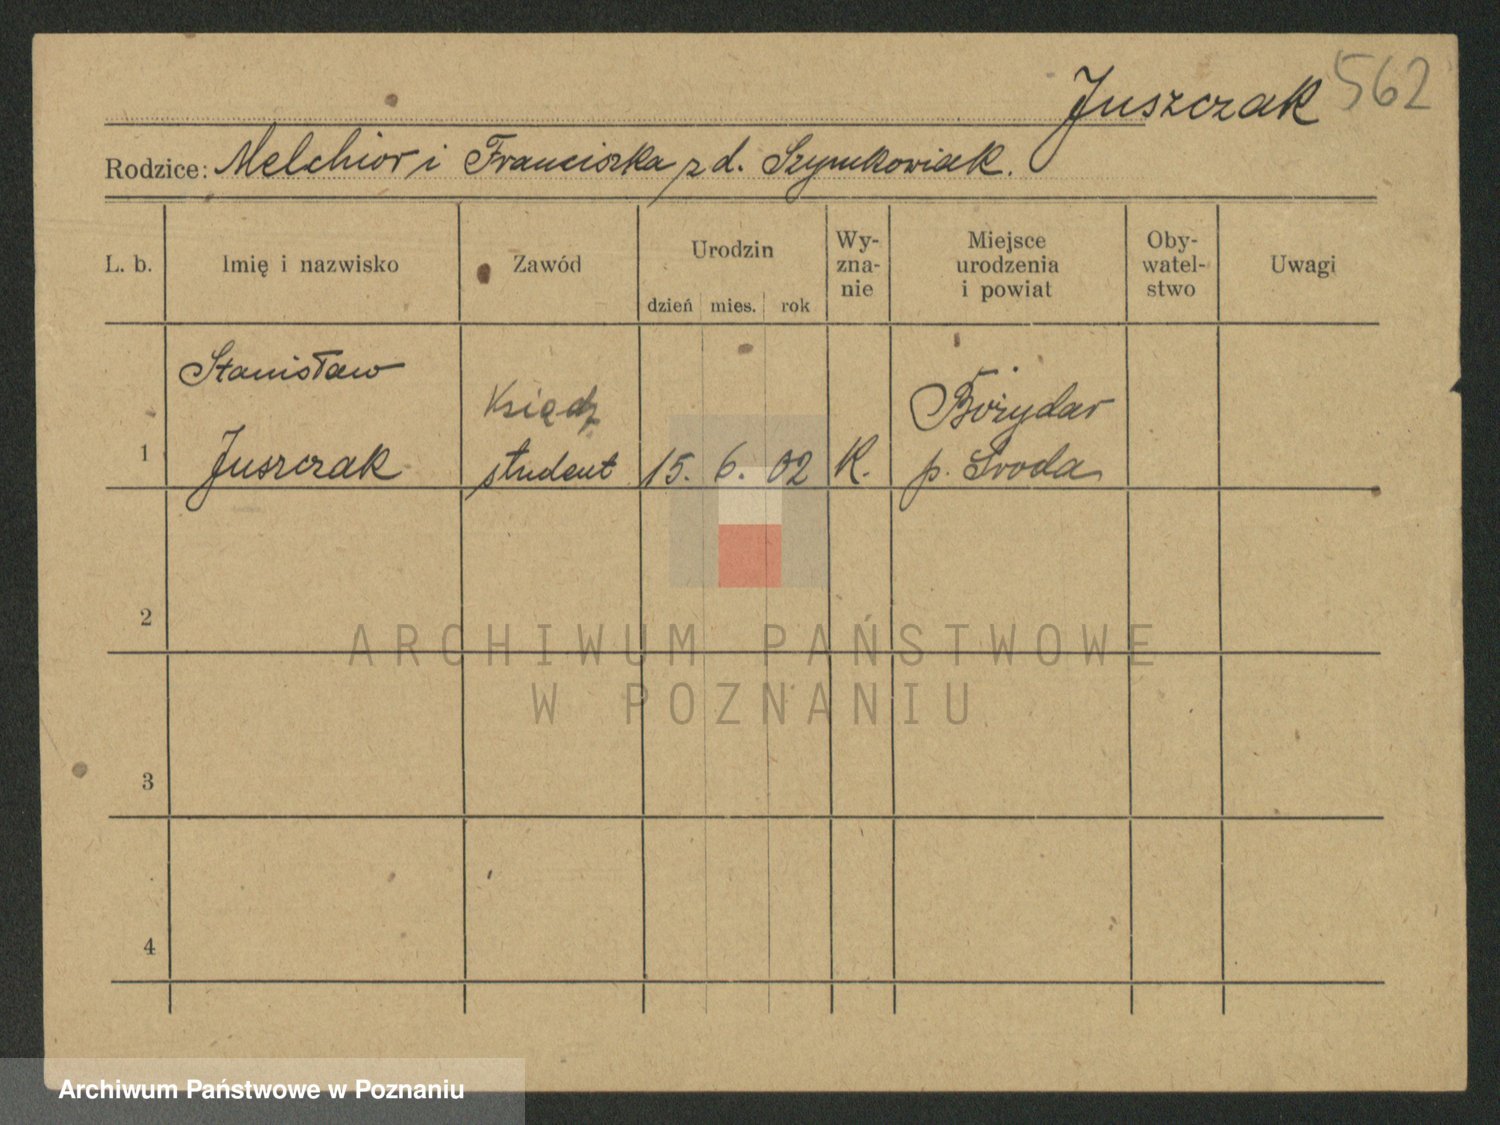 Juszczak 562
Rodzice: Melchior i Franciszka z d. Szymkowiak.
L. b. Imię i nazwisko Zawód Urodzin Wy-zna-nie Miejsce urodzenia i powiat Oby-watel-stwo Uwagi
dzień mies. rok
Stanisław Ksiądz Bożydar
1 Juszczak student 15. 6. 02 K. p. Środa
2
ARCHIWUM PAŃSTWOWE
W POZNANIU
3
4
Archiwum Państwowe w Poznaniu